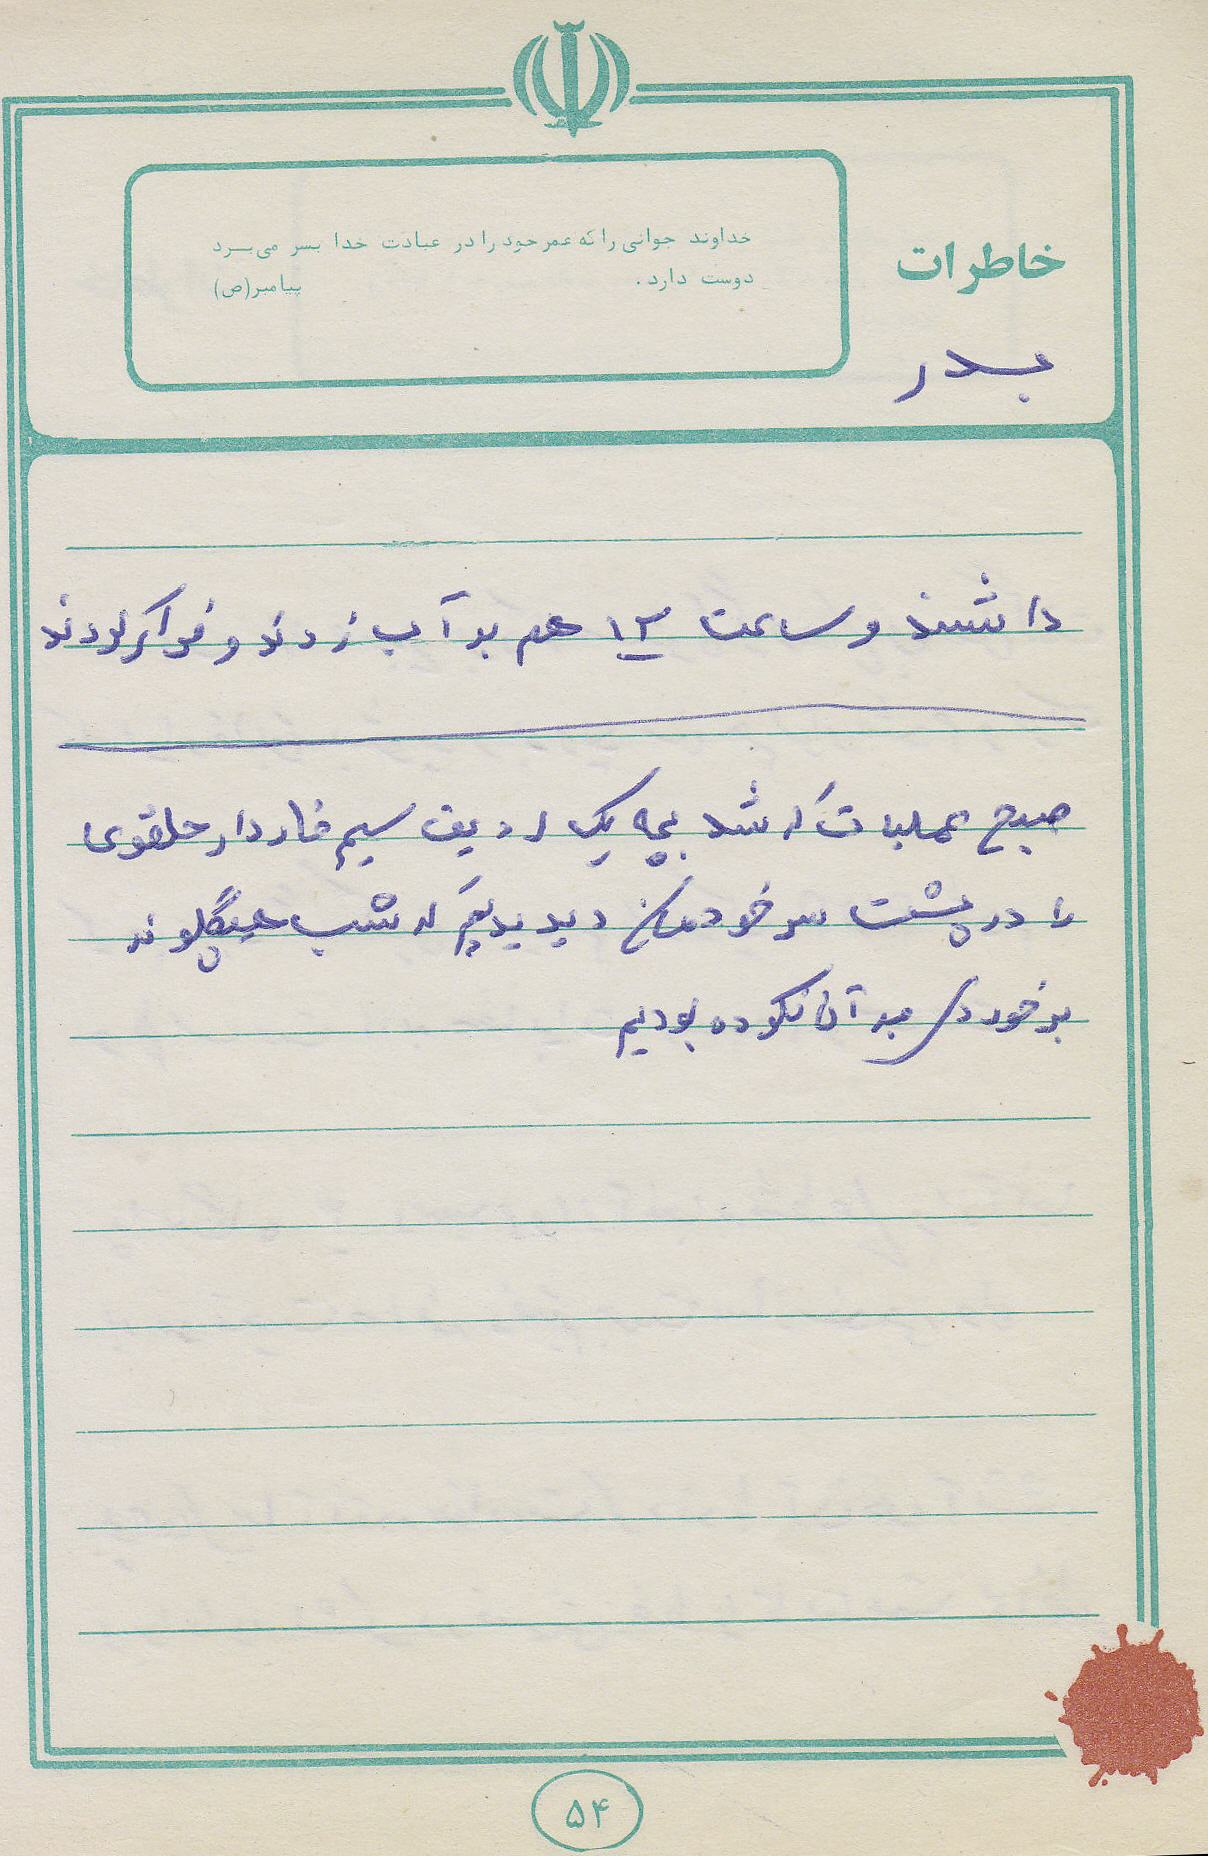 خاطرات
خداوند جوانی را که عمر خود را در عبادت خدا بسر می‌برد
دوست دارد. پیامبر(ص)
بدر
داشتند و ساعت ۱۲ هم به آب زدند و فرار کردند
صبح عملیات که شد یک ردیف سیم خاردار حلقوی
را در پشت سر خودمان دیدیم که شب هیچگونه
برخوردی به آن نکرده بودیم
۵۴